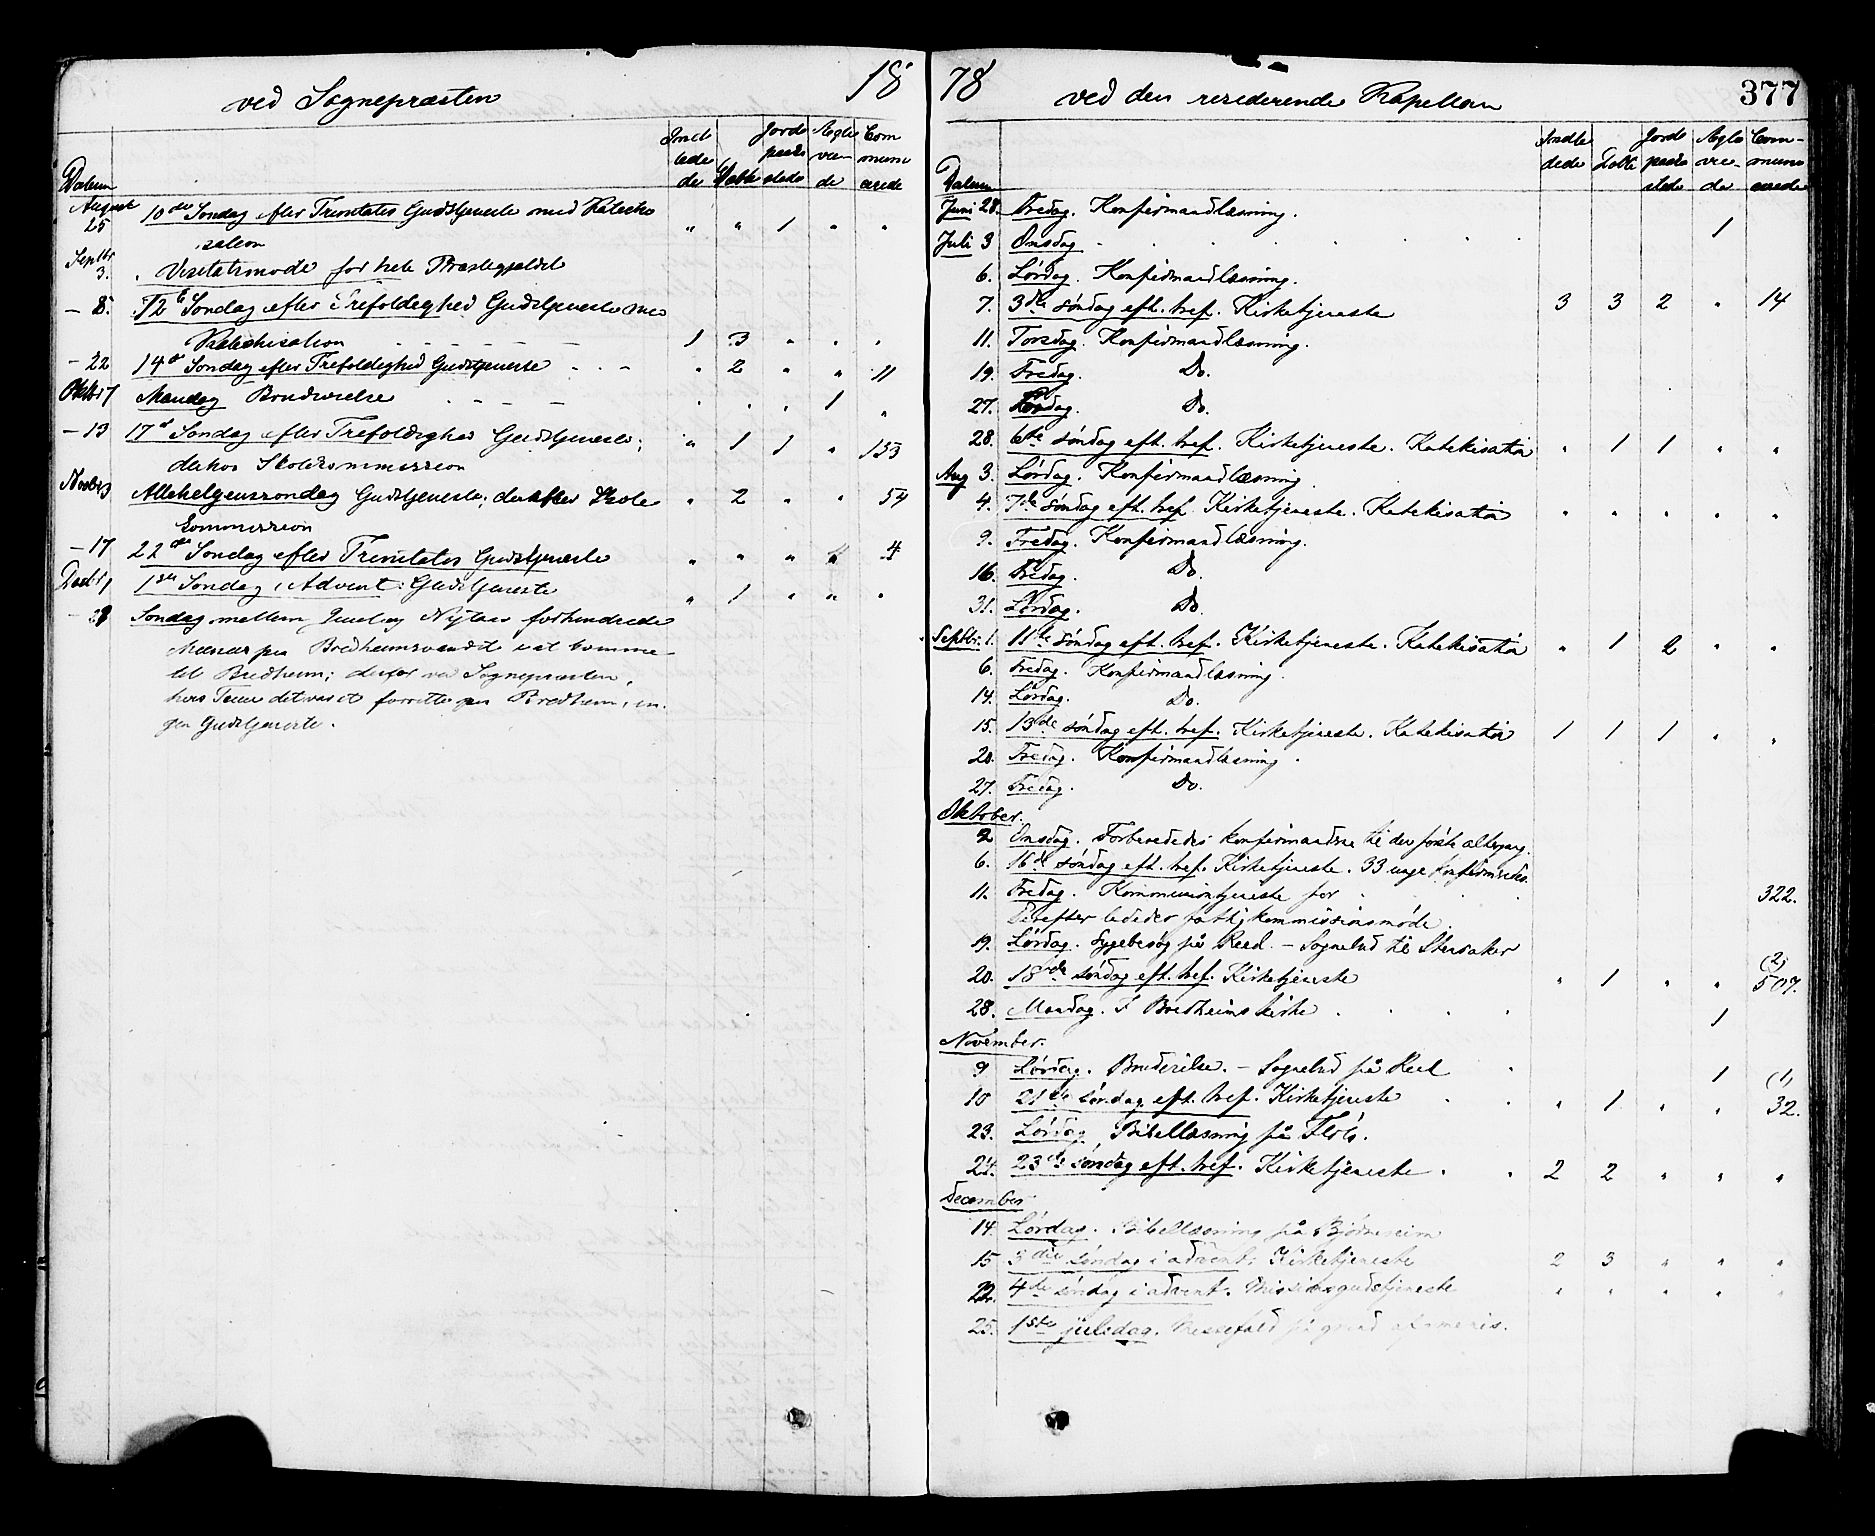 ved Sognepræsten 18
Datum
Indledede Døbte Jordpaakastede Ægteviede Communicerede
August 25 10de Søndag efter Trinitatis Gudstjeneste med Katechisation " " 1 " "
Septbr 3. Visitatsmøde for hele Præstegjeldet
— 8. 12te Søndag efter Trefoldighed Gudstjeneste med
Katechisation 1 3 " " "
— 22 14de Søndag efter Trefoldighed Gudstjeneste - - - " 2 " " 11
Oktbr 7 Mandag Brudvielse - - - - " " " 1 "
— 13 17de Søndag efter Trefoldighed Gudstjeneste; " 1 1 " 153
derhos Skolekommission
Novbr 3 Allehelgenssondag Gudstjeneste; derefter Skole " 2 " " 54
Commission
— 17 22de Søndag efter Trinitatis Gudstjeneste " " " " 4
Decbr 1 1ste Søndag i Advent: Gudstjeneste " 1 " " "
— 29 Søndag mellem Juul og Nytaar forhindrede
Menis paa Bredheimsvandet i at komme
til Bredheim; derfor ved Sognepræsten,
hvis Tour det var at forrette paa Bredheim, in-
gen Gudstjeneste.
78 ved den residerende Kapellan 377
Datum
Indledede Døbte Jordpaakastede Ægteviede Communicerede
Juni 28. Fredag. Konfirmandlæsning.
Juli 3 Onsdag . . . . . 1
6. Lördag. Konfirmandlæsning.
7. 3die søndag eft. tref. Kirketjeneste 3 3 2 " 14
11. Torsdag. Konfirmandlæsning.
19. Fredag. Do.
27. Lördag. Do.
28. 6te søndag eft. tref. Kirketjeneste. Katekisation " 1 1 " "
Aug 3. Lördag. Konfirmandlæsning
4. 7de søndag eft. tref. Kirketjeneste. Katekisation " " " " "
9. Fredag. Konfirmandlæsning.
16. Fredag. Do.
31. Lördag. Do.
Septbr. 1. 11te søndag eft. tref. Kirketjeneste. Katekisation " 1 2 " "
6. Fredag. Konfirmandlæsning.
14. Lördag. Do.
15. 13de søndag eft. tref. Kirketjeneste. Katekisation 1 1 1 " "
20. Fredag. Konfirmandlæsning.
27. Fredag. Do.
Oktober.
2 Onsdag. Forberededes konfirmandene til den første altergang.
6. 16de søndag eft. tref. Kirketjeneste. 33 unge konfirmeredes.
11. Fredag. Kommuniontjeneste for . . . 322.
Derefter lededes fattigkommissionsmøde.
19. Lördag. Sygebesøg på Reed. — Sognebud til (2)
20. 18de søndag eft. tref. Kirketjeneste " 1 " " 507.
28. Mandag. I Bredheims kirke . . . . 1
November.
9 Lördag. Brudevielse. — Sognebud på Reed . 1 (1)
10 21de søndag eft. tref. Kirketjeneste . " 1 " " 32.
23. Lördag. Bibellæsning på Flolö.
24. 23de søndag eft. tref. Kirketjeneste . . 2 2 " " "
December
14. Lördag. Bibellæsning på Bjørneseim
15 3die søndag i advent. Kirketjeneste 2 3 " " "
22. 4de søndag i advent. Missionsgudstjeneste " " " " "
25. 1ste juledag. Messefald på grund af menis.